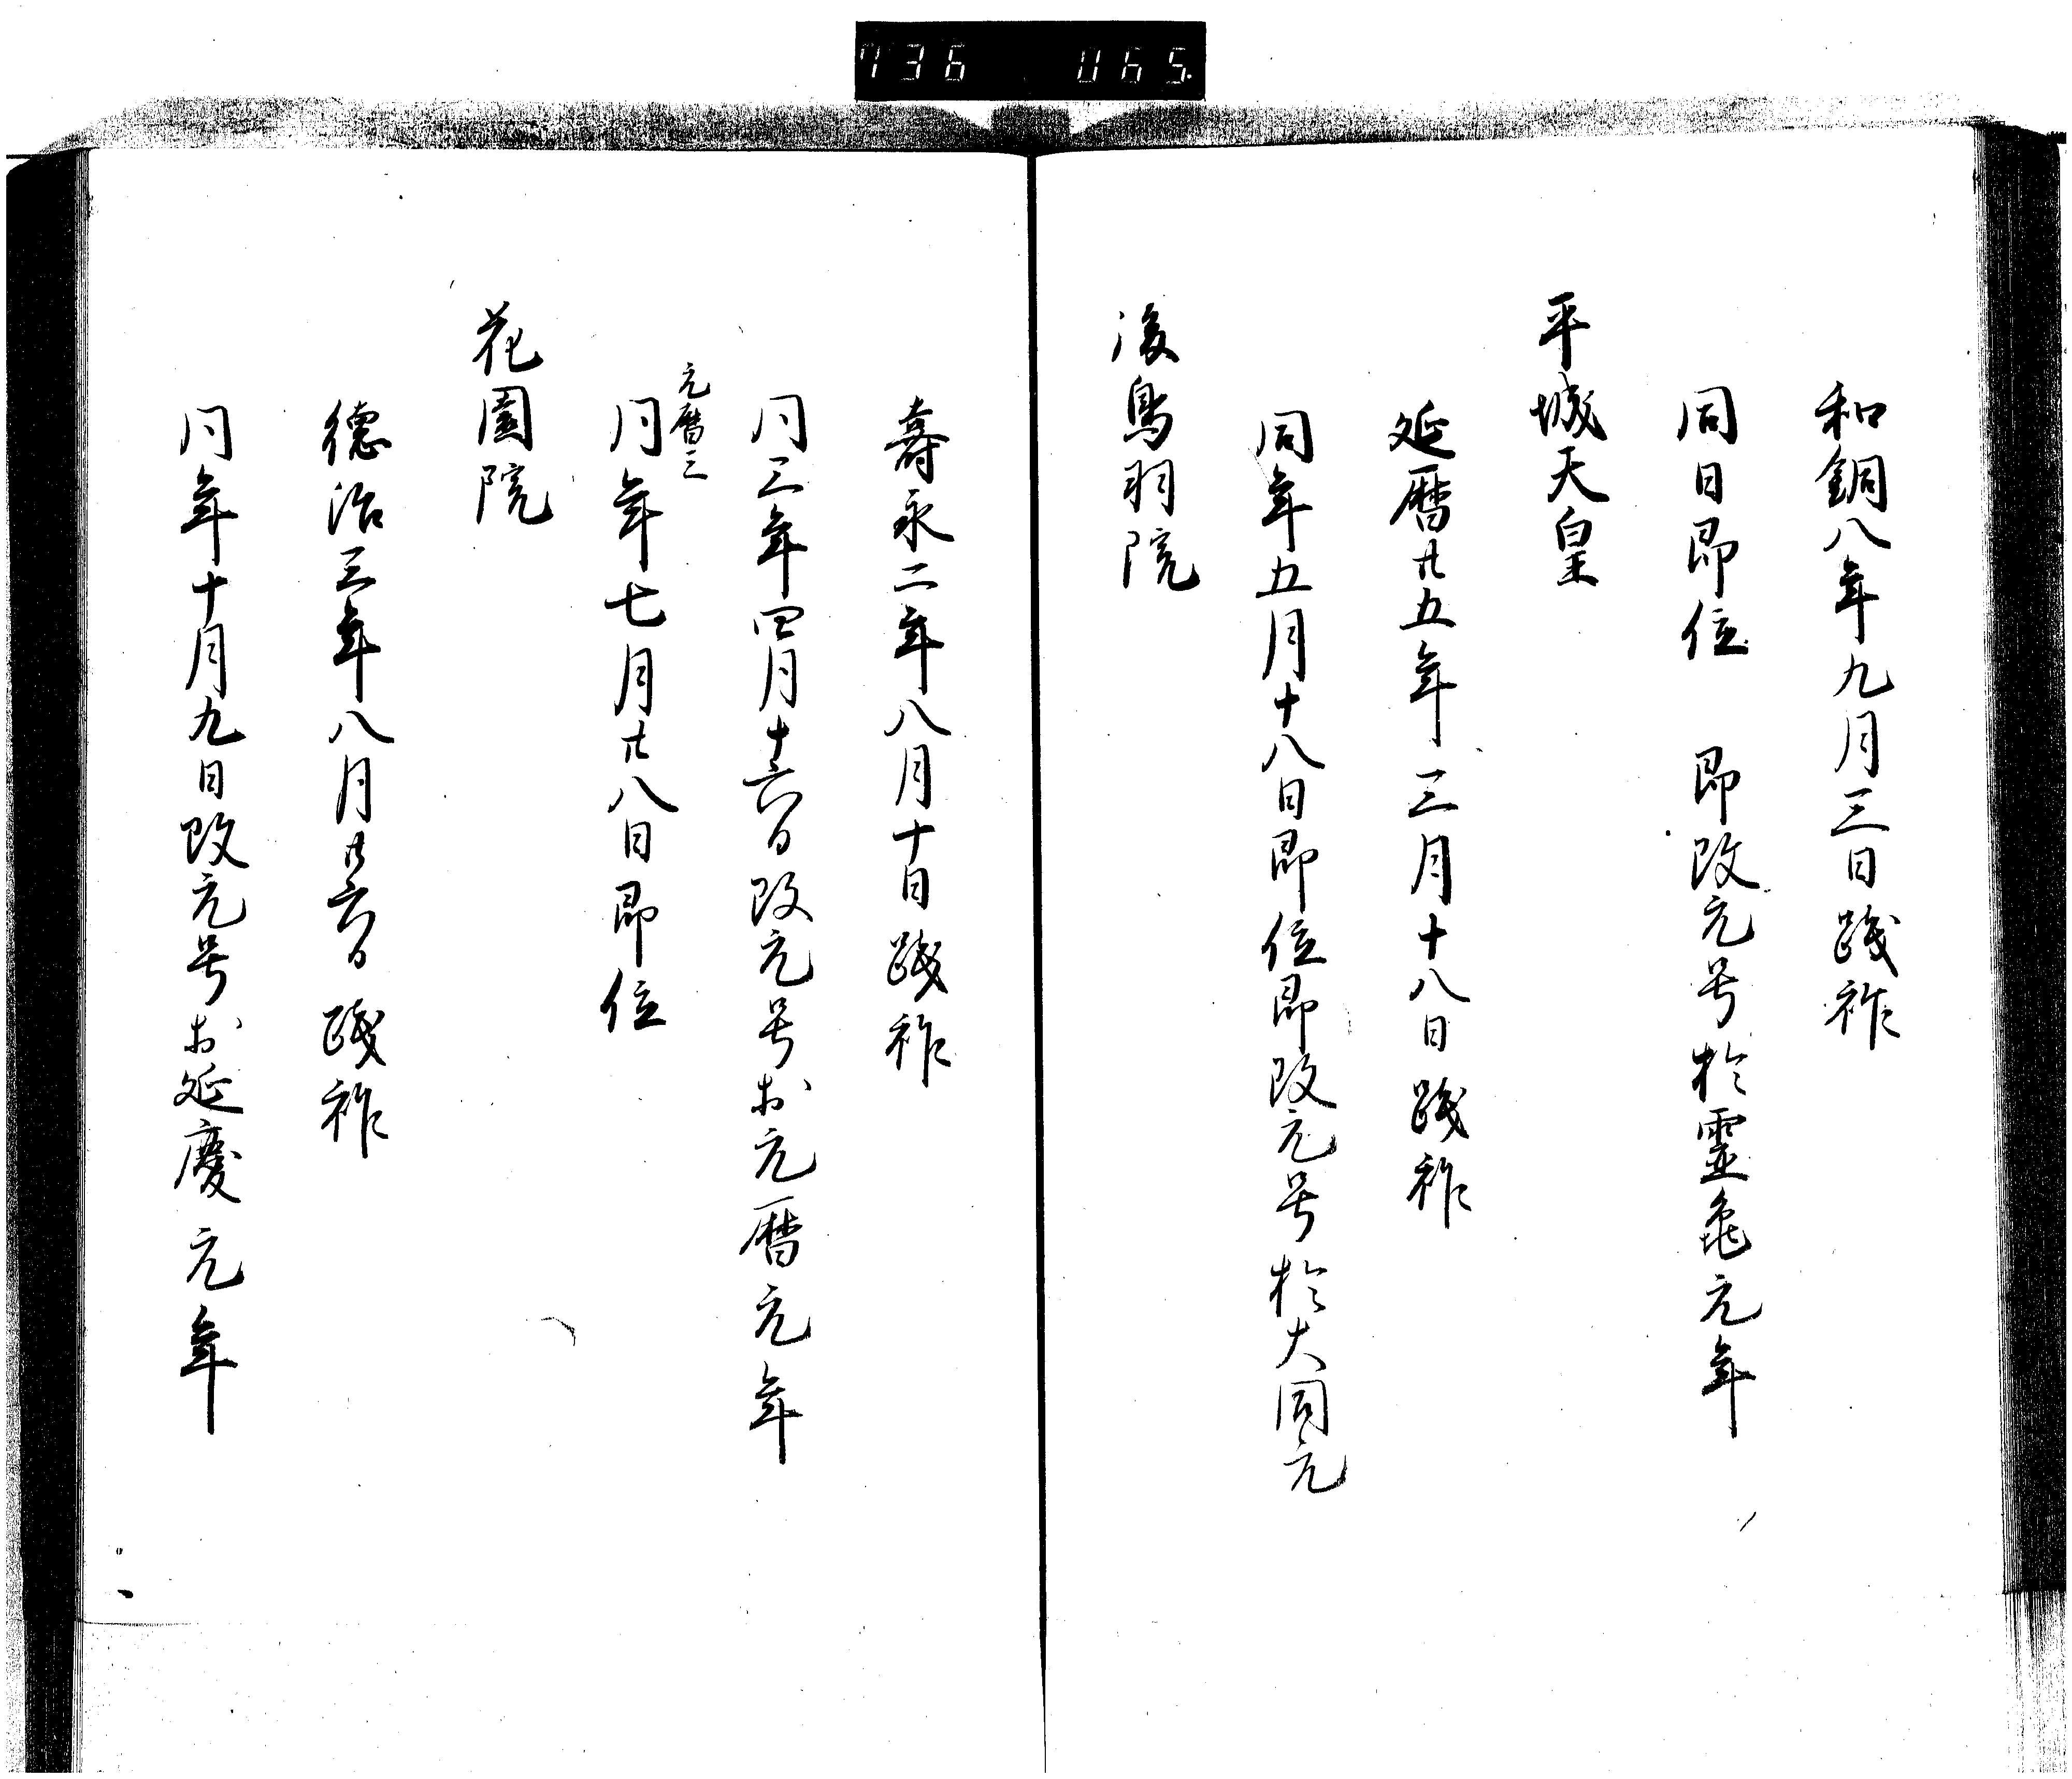 736 065
和銅八年九月三日踐祚
同日即位 即改元号於靈亀元年
平城天皇
延暦廿五年三月十八日踐祚
同年五月十八日即位即改元号於大同元
後鳥羽院
壽永二年八月十日踐祚
同三年四月十六日改元号於元暦元年
元暦三
同年七月廿八日即位
花園院
徳治三年八月廿六日踐祚
同年十月九日改元号於延慶元年